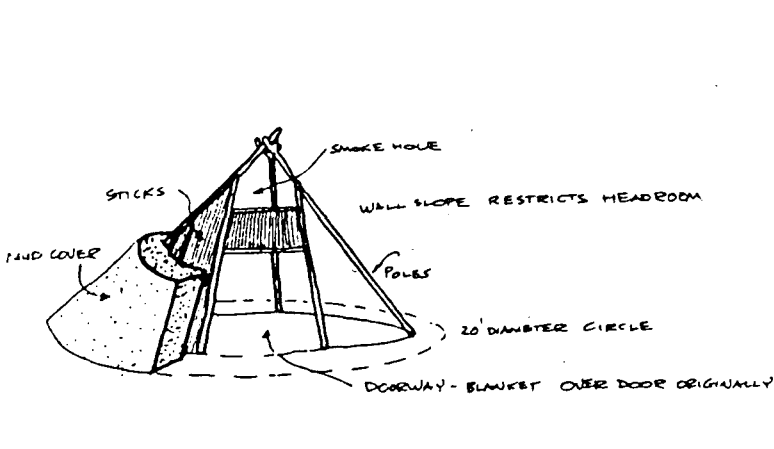 SMOKE HOLE
STICKS
WALL SLOPE RESTRICTS HEADROOM
MUD COVER
POLES
20' DIAMETER CIRCLE
DOORWAY - BLANKET OVER DOOR ORIGINALLY